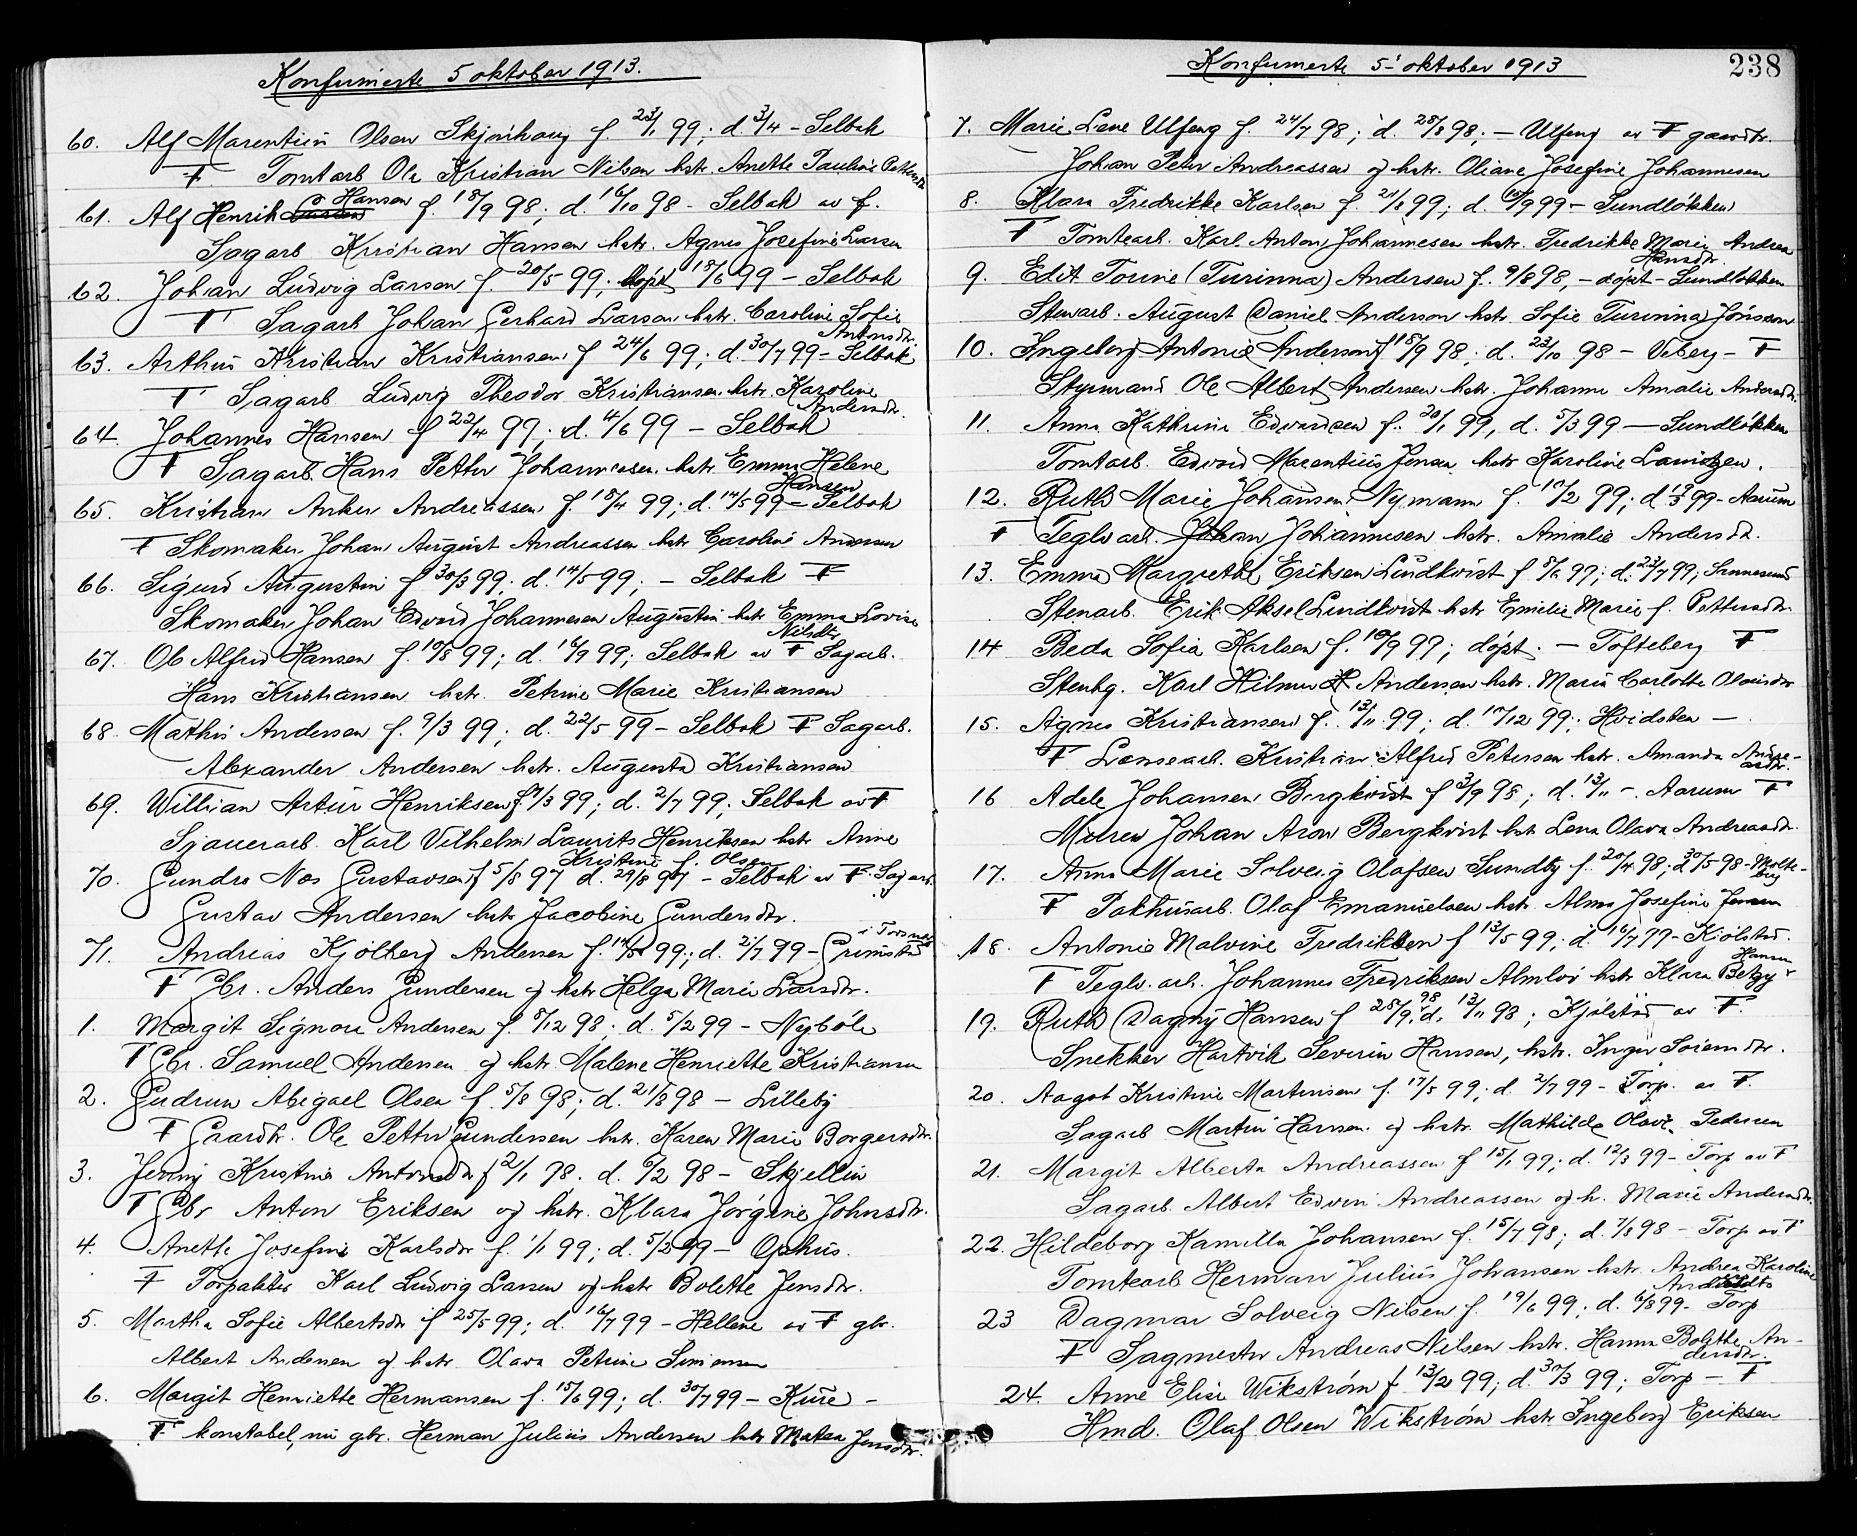 Konfirmerte 5 oktober 1913.
60. Alf Marentius Olsen Skjönhaug f. 23/1 99; d. 3/4 - Selbak
F Tomtarb Ole Kristian Nilsen hstr. Anette Pauline Pettersdr
61. Alf Henrik Hansen f. 18/9 98; d. 16/10 98 - Selbak av f.
Sagarb Kristian Hansen hstr. Agnes Josefine Larsen
62. Johan Ludvig Larsen f. 20/5 99; döpt 18/6 99 - Selbak
F Sagarb Johan Gerhard Larsen hstr. Caroline Sofie
Antonsdr.
63. Arthur Kristian Kristiansen f 24/6 99; d. 30/7 99 - Selbak
F Sagarb Ludvig Theodor Kristiansen hstr. Karoline
Andersdr.
64. Johannes Hansen f 22/4 99; d. 4/6 99 - Selbak
F Sagarb. Hans Petter Johannesen hstr Emma Helene
Hansen
65. Kristian Anker Andreassen f 18/4 99; d. 14/5 99 - Selbak
F Skomaker Johan August Andreassen hstr Caroline Andersen
66. Sigurd Augustin f 30/3 99; d. 14/5 99; - Selbak F
Skomaker Johan Edvard Johannesen Augustin hstr Emma Lovise
Nilsdtr
67. Ole Alfred Hansen f. 10/8 99; d. 16/9 99; Selbak av F Sagarb.
Hans Kristiansen hstr. Petrine Marie Kristiansen
68. Mathis Andersen f. 9/3 99; d. 22/5 99 - Selbak F Sagarb.
Alexander Andersen hstr. Augusta Kristiansen
69. Willian Artur Henriksen f 1/3 99; d. 2/7 99; Selbak av F
Sjauerarb. Karl Vilhelm Laurits Henriksen hstr Anne
Kristine f. Olsen
70. Gundro Nos Gustavsen f 5/8 97 d. 29/8 97 - Selbak av F. Sagarb.
Gustav Andersen hstr Jacobine Gundersdtr.
i Torsnes
71. Andreas Kjölberg Andersen f. 14/5 99; d. 2/7 99 - Grimstad
F Gbr. Anders Gundersen og hstr Helga Marie Larsdtr.
1. Margit Signora Andersen f. 8/12 98; d. 5/2 99 - Nyböle
F Gbr. Samuel Andersen og hstr Malene Henriette Kristiansen
2. Gudrun Abigael Olsen f. 5/8 98; d. 21/8 98 - Lilleby
F Gaardbr. Ole Petter Gundersen hstr. Karen Marie Borgersdtr.
3. Jenny Kristine Antonsdr f 2/1 98. d. 9/2 98 - Skjellin
F Gbr Anton Eriksen og hstr. Klara Jörgine Johnsdtr.
4. Anette Josefine Karlsdr f. 1/1 99; d. 5/2 99 - Ophus.
F Forpakter Karl Ludvig Larsen og hstr Bolette Jensdtr.
5. Martha Sofie Albertsdr f 25/5 99; d. 16/7 99 - Hellene av F gbr.
Albert Andersen og hstr Olava Petrine Simensen
6. Margit Henriette Hermansen f. 15/6 99; d. 30/7 99 - Kure -
F konstabel, nu gbr. Herman Julius Andersen hstr Matea Jensdtr.
Konfirmerte 5' oktober 1913
238
7. Marie Lene Ulfeng f. 24/7 98; d. 28/8 98; - Ulfeng av F gaardbr.
Johan Peter Andreassen og hstr. Oliane Josefine Johannesen
8. Klara Fredrikke Karlsen f. 21/6 99; d. 10/9 99 - Sundlökken
F Tomtearb. Karl Anton Johannesen hstr. Fredrikke Marie Andrea
Hansdtr.
9. Edit Tourine (Turinna) Andersen f. 9/8 98, - döpt - Sundlökken
Stenarb. August Daniel Anderson hstr. Sofie Turinna Jönsson
10. Ingeborg Antonie Andersen f 18/9 98; d. 23/10 98 - Veberg - F
Styrmand Ole Albert Andersen hstr. Johanne Amalie Andersdtr.
11. Anna Kathrine Edvardsen f. 20/1 99, d. 5/3 99 - Sundlökken
Tomtarb. Edvard Marentius Jensen hstr Karoline Lauritzen.
12. Ruth Marie Johansen Nymann f. 17/2 99; d 19/3 99 - Aarum
F Teglv arb. Johan Johannesen hstr. Amalie Andersdr.
13. Emma Margrethe Eriksen Lundkvist f 8/6 99; d. 23/7 99, Sannesund
Stenarb. Erik Aksel Lundkvist hstr Emilie Marie f. Pettersdtr.
14 Beda Sofia Karlsen f. 10/9 99; döpt. - Tofteberg F
Stenhg. Karl Hilmer Andersen hstr. Maria Carlotte Olavsdtr
15. Agnes Kristiansen f. 13/11 99; d. 17/12 99; Hvidsten -
F Lænsearb. Kristian Alfred Petersen hstr. Amanda Andre-
asdtr.
16 Adele Johansen Bergkvist f 3/9 98; d. 13/11 - Aarum F
Murer Johan Aron Bergkvist hstr Lena Olava Andreasdtr.
17. Anna Marie Solveig Olafsen Sundby f. 20/4 98; d 30/5 98 - Molte-
berg
F Pakhusarb. Olaf Emanuelsen hstr. Alma Josefine Jensen
18. Antonie Malvine Fredriksen f 13/5 99; d. 16/7 99 - Kjölstad.
Hansen
F Teglv. arb. Johannes Fredriksen Almlöv hstr Klara Betzy
19. Ruth Dagny Hansen f 25/9 98. d. 13/11 98; Kjölstad av F.
Snekker Hartvik Severin Hansen, hstr. Inger Sörensdtr.
20. Aagot Kristine Martinsen f. 17/5 99; d. 2/7 99 - Torp. av F.
Sagarb Martin Hansen og hstr. Mathilde Olave Pedersen
21. Margit Alberta Andreassen f 15/1 99; d. 12/3 99 - Torp av F
Sagarb. Albert Edvin Andreassen og h. Marie Andersdtr.
22. Hildeborg Kamilla Johansen f. 15/7 98; d. 7/8 98 - Torp av F
Tomtearb Herman Julius Johansen hstr. Andrea Karoline
23 Dagmar Solveig Nilsen f. 19/6 99; d. 6/8 99 - Torp
F Sagmester Andreas Nilsen hstr. Hanna Bolette An-
dersdtr.
24. Anne Elise Wikström f 13/2 99; d. 30/3 99; Torp - F
Hmd. Olaf Olsen Wikström hstr Ingeborg Eriksen